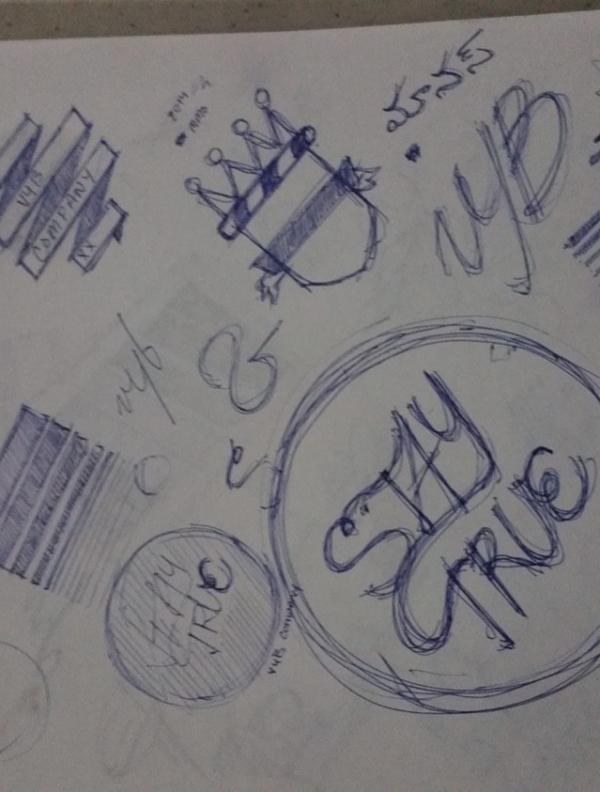 VYB
COMPANY
XX
VYB
vyb
&
STAY
TRUE
STAY
TRUE
VYB Company